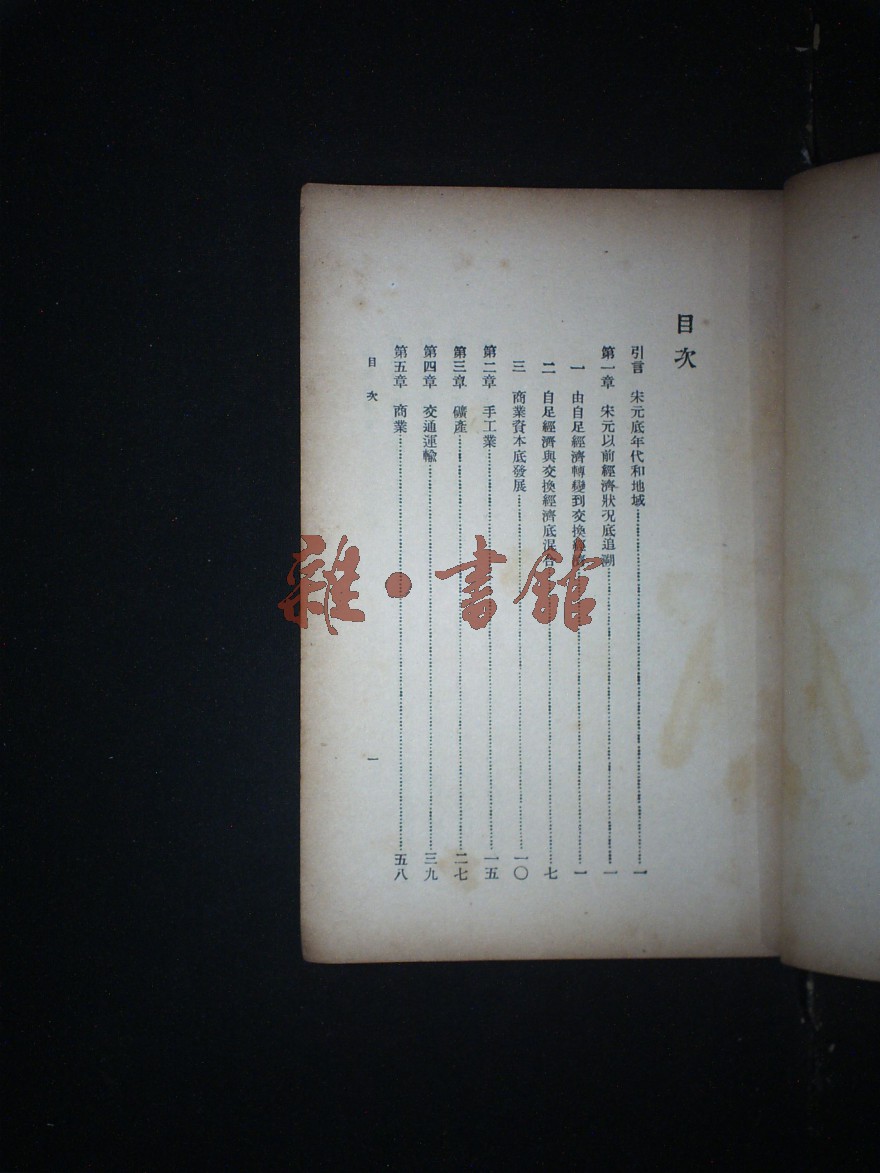 目次
引言　宋元底年代和地域……一
第一章　宋元以前經濟狀况底追溯……一
一　由自足經濟轉變到交換經濟……一
二　自足經濟與交換經濟底混合……七
三　商業資本底發展……一〇
第二章　手工業……一五
第三章　礦產……二七
第四章　交通運輸……三九
第五章　商業……五八
目次　一
雜·書館